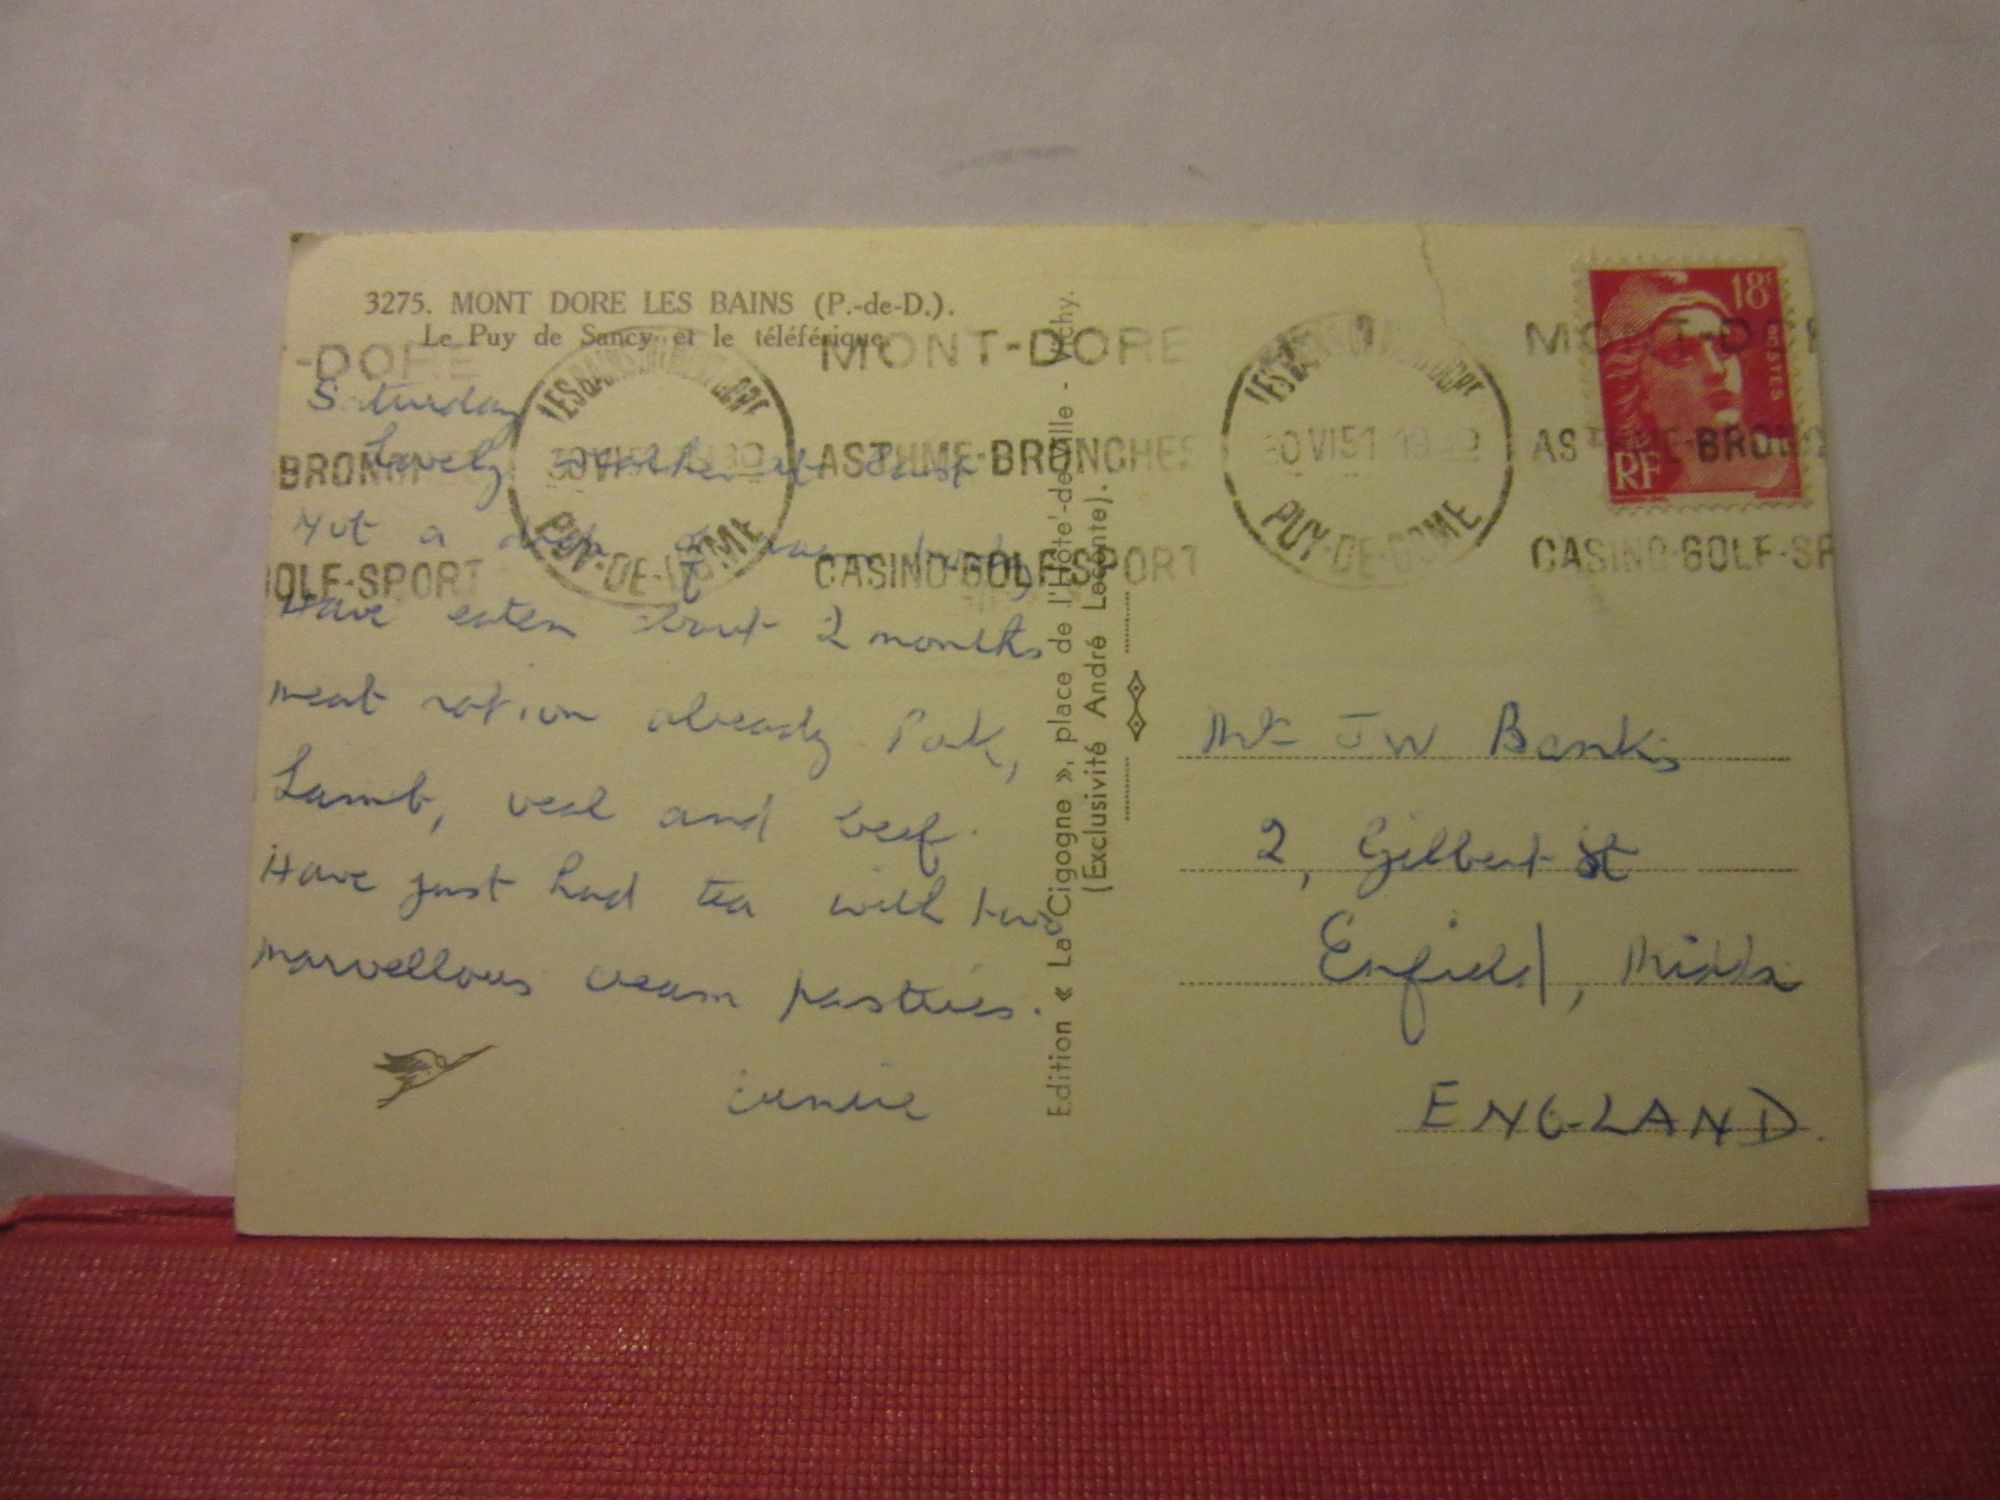 3275. MONT DORE LES BAINS (P.-de-D.).
Le Puy de Sancy et le téléférique
Saturday
Lovely weather at last
Not a drop of rain today
Have eaten about 2 months
meat ration already Pork,
Lamb, veal and beef.
Have just had tea with two
marvellous cream pastries.
Edition « La Cigogne », place de l'Hôtel-de-Ville - Vichy.
(Exclusivité André Leconte).
-DORE
BRONCHES
GOLF-SPORT
LES BAINS DU MONT DORE
30 VI 51
PUY-DE-DOME
MONT-DORE
ASTHME-BRONCHES
CASINO-GOLF-SPORT
LES BAINS DU MONT DORE
30 VI 51
PUY-DE-DOME
MONT-DOR
ASTHME-BRONC
CASINO-GOLF-SP
18F
POSTES
RF
Mr J W Banks
2, Gilbert St
Enfield, Middx
ENGLAND.